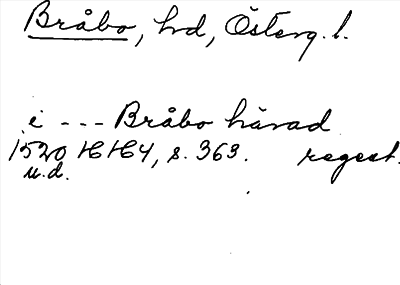 Bråbo, hd, Österg. l.
i --- Bråbo härad
1520 HH 4, s. 363. regest.
u.d.